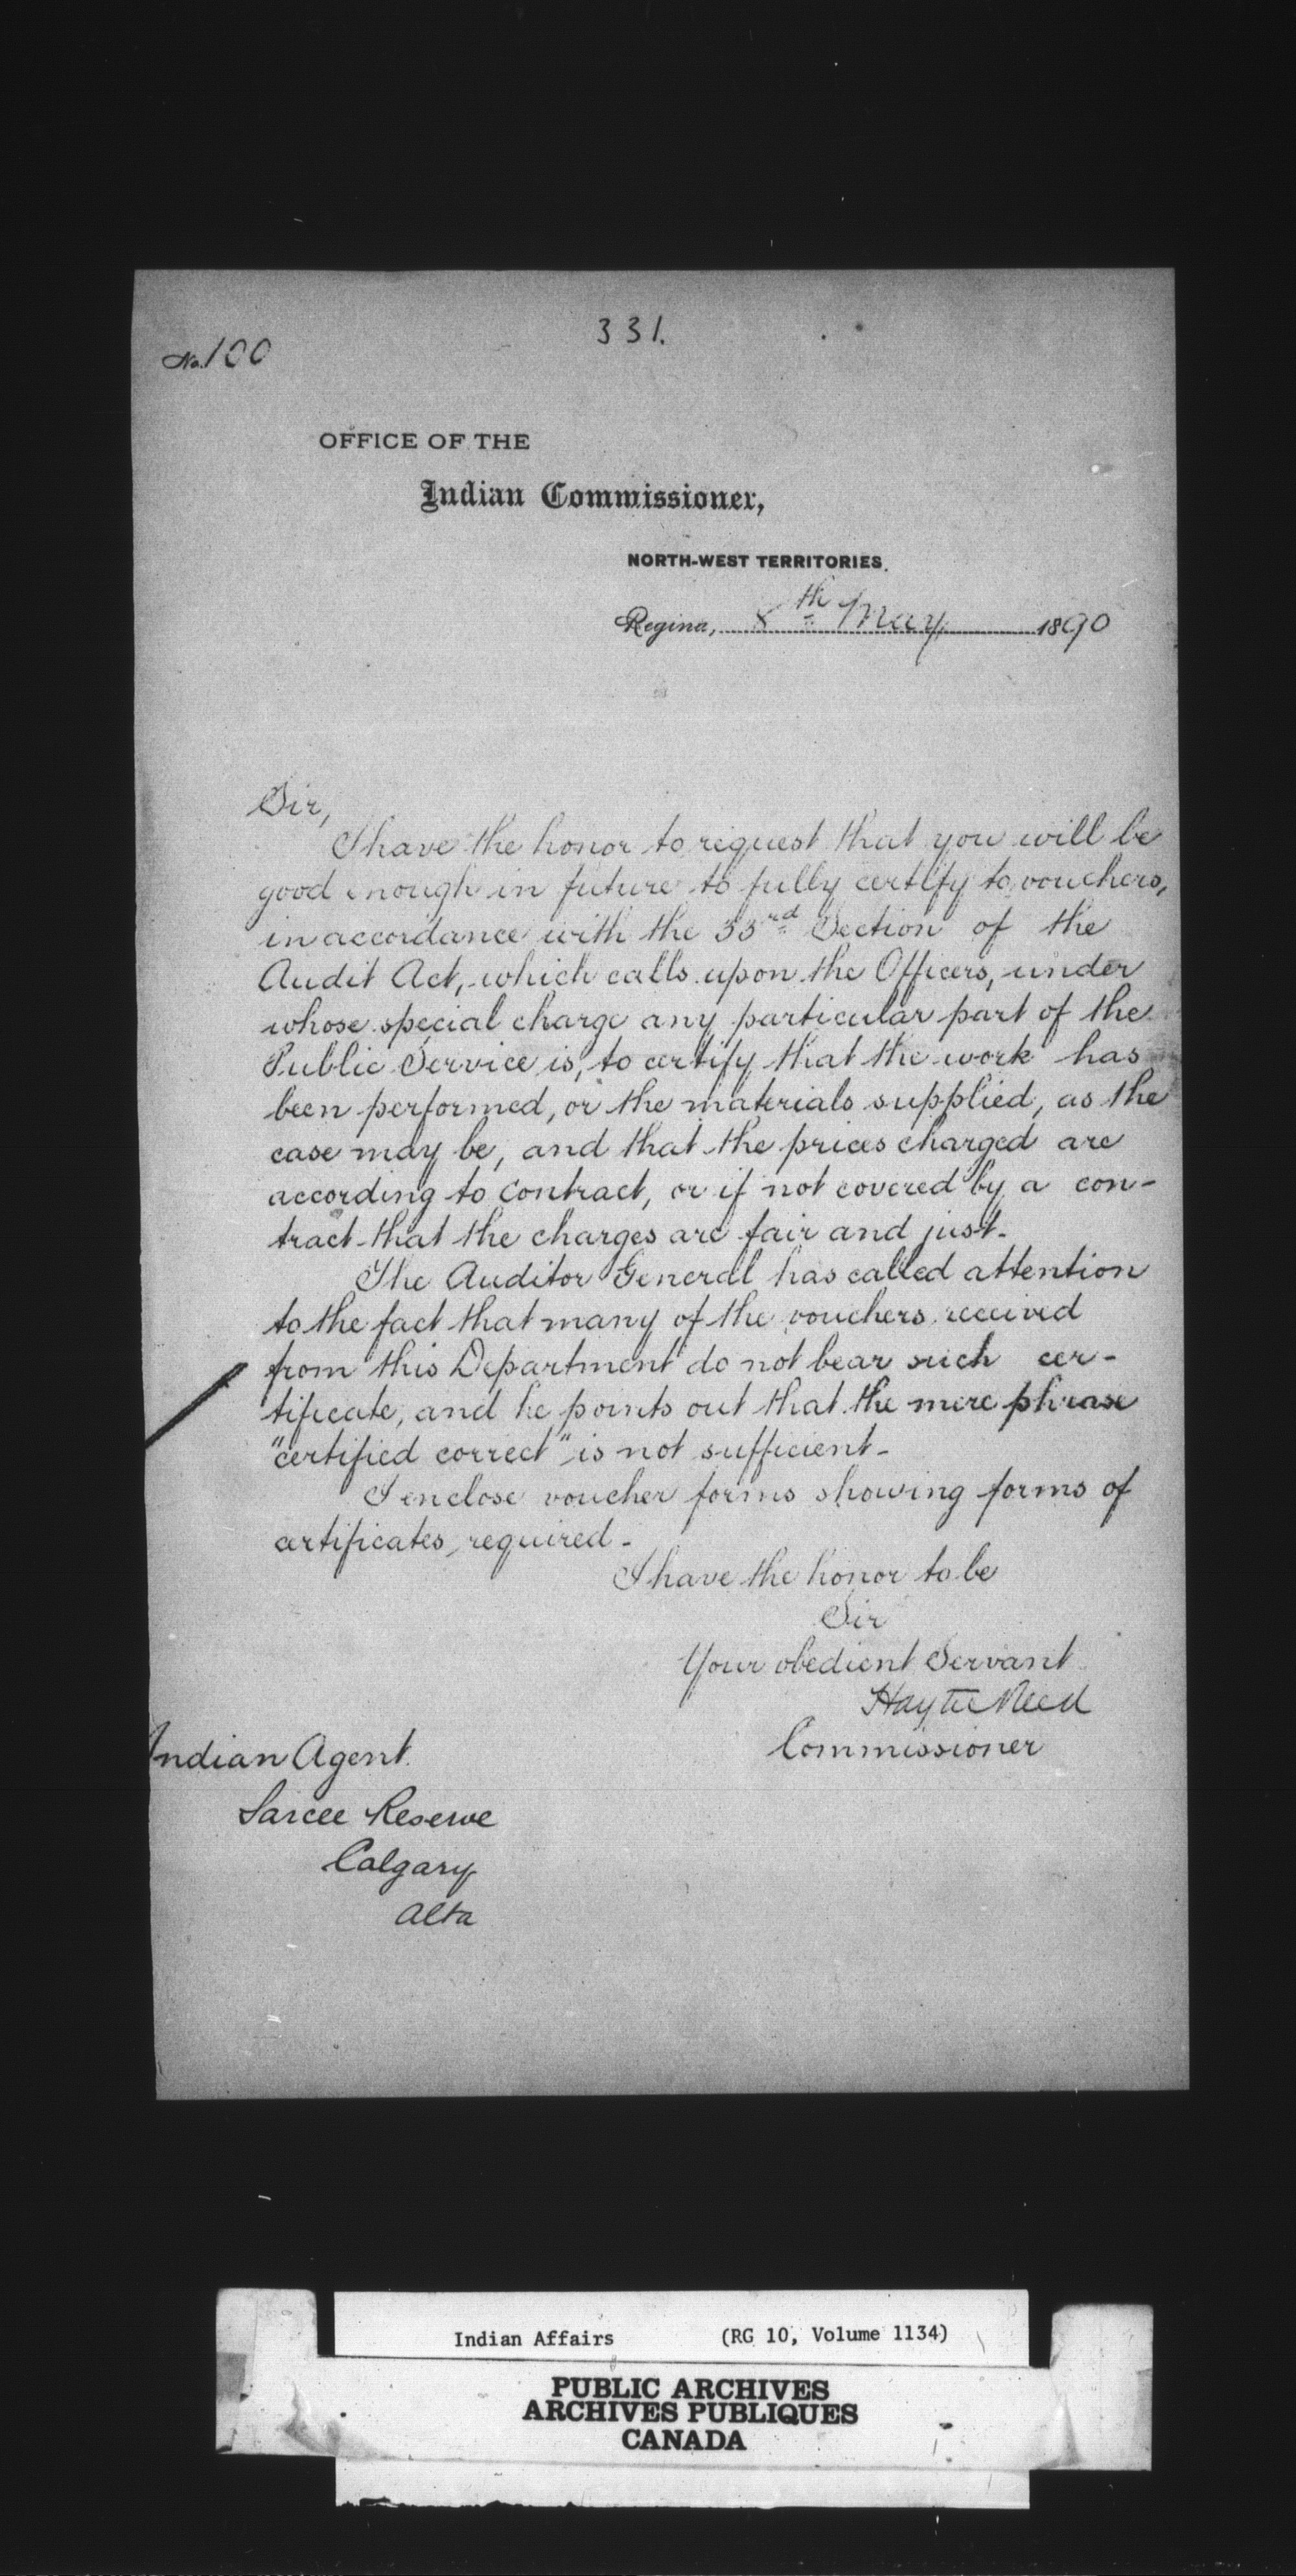 331.
No. 100
OFFICE OF THE
Indian Commissioner,
NORTH-WEST TERRITORIES.
Regina, 8th May 1890
Sir,
I have the honor to request that you will be
good enough in future to fully certify to vouchers,
in accordance with the 33rd Section of the
Audit Act, which calls upon the Officers, under
whose special charge any particular part of the
Public Service is, to certify that the work has
been performed, or the materials supplied, as the
case may be, and that the prices charged are
according to contract, or if not covered by a con-
tract that the charges are fair and just.
The Auditor General has called attention
to the fact that many of the vouchers received
from this Department do not bear such cer-
tificate, and he points out that the mere phrase
"certified correct" is not sufficient -
I enclose voucher forms showing forms of
certificates required -
I have the honor to be
Sir
Your obedient Servant
Hayter Reed
Commissioner
Indian Agent.
Sarcee Reserve
Calgary
Alta
Indian Affairs (RG 10, Volume 1134)
PUBLIC ARCHIVES
ARCHIVES PUBLIQUES
CANADA